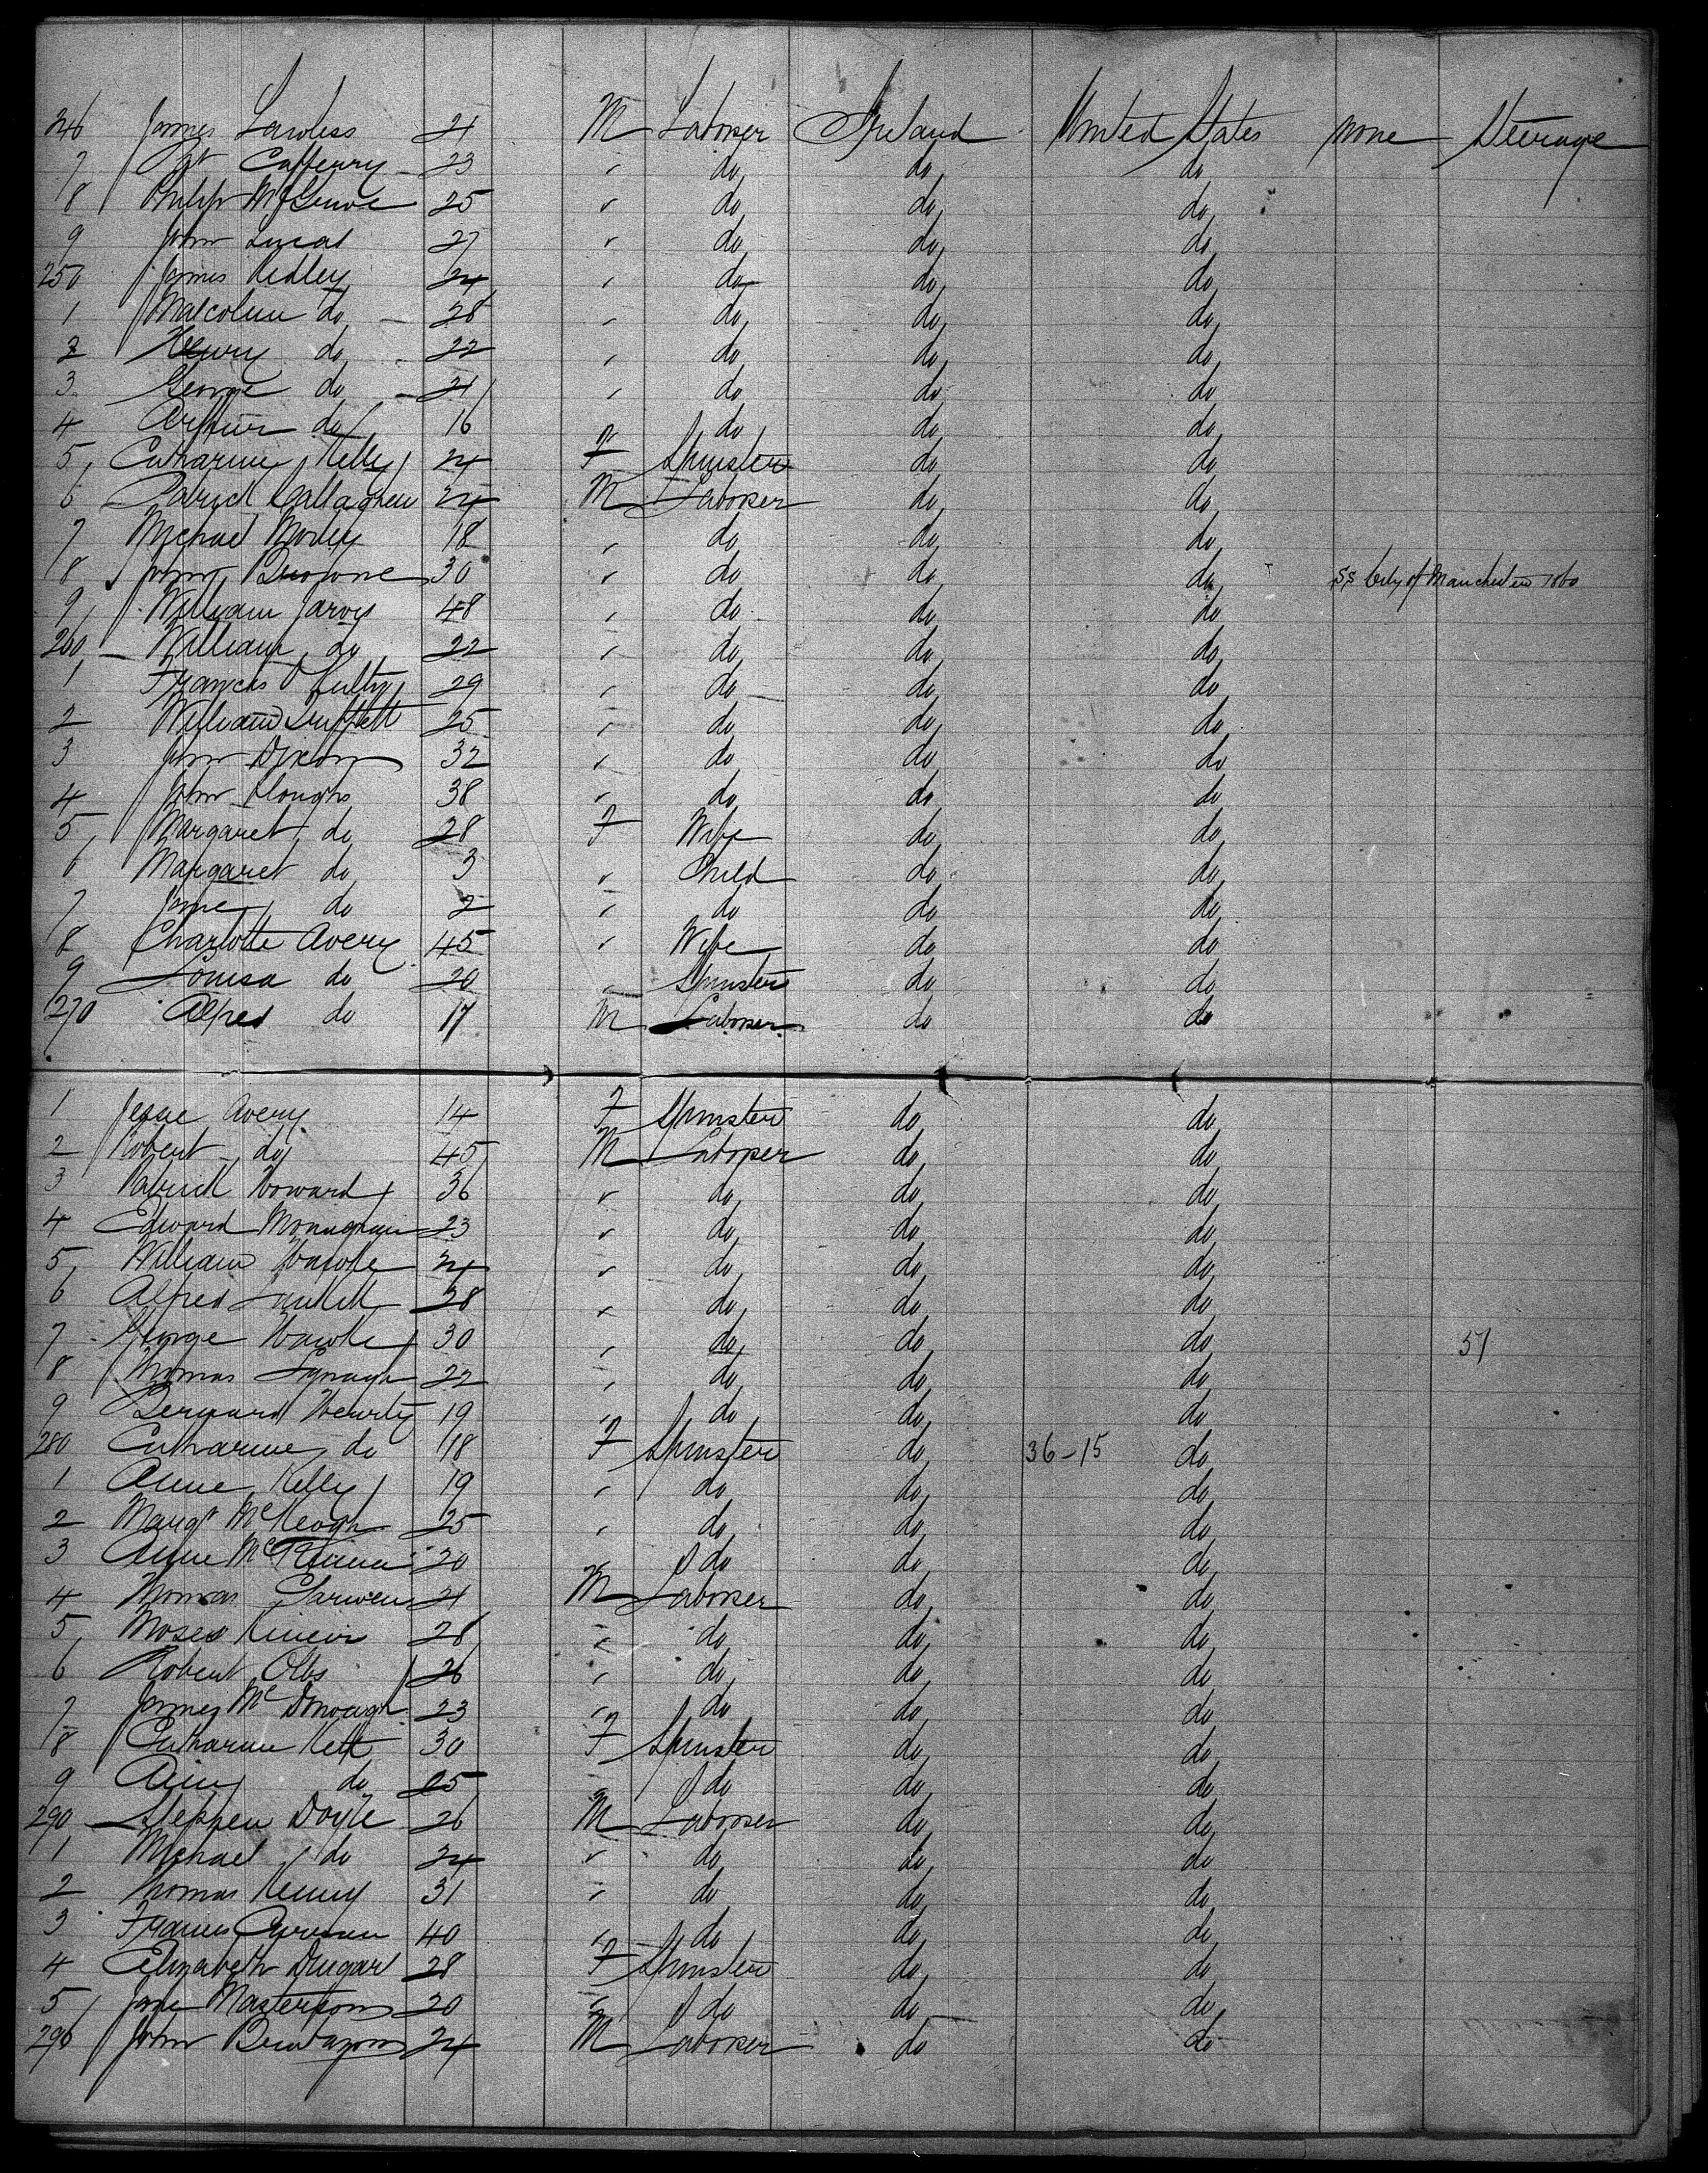 246 James Lawless 21 M Laborer Ireland United States none Steerage
7 Pat Caffeury 23 " do do do
8 Philip 25 " do do do
9 John Lucas 27 " do do do
250 James Kedley 24 " do do do
1 Malcolm do 28 " do do do
2 Henry do 22 " do do do
3 George do 21 " do do do
4 Arthur do 16 " do do do
5 Catharine Kelly 24 F Spinster do do
6 Patrick Gallagher 24 M Laborer do do
7 Michael Morley 18 " do do do
8 John Browne 30 " do do do SS City of Manchester 1860
9 William Jarvis 48 " do do do
260 William do 22 " do do do
1 Francis 29 " do do do
2 William 25 " do do do
3 John Dixon 32 " do do do
4 John Cloughs 38 " do do do
5 Margaret do 28 F Wife do do
6 Margaret do 3 " Child do do
7 Jane do 2 " do do do
8 Charlotte Avery 45 " Wife do do
9 Louisa do 20 " Spinster do do
270 Alfred do 17 M Laborer do do
1 Jessie Avery 14 F Spinster do do
2 Robert do 45 M Laborer do do
3 Patrick Howard 36 " do do do
4 Edward Monaghan 23 " do do do
5 William 24 " do do do
6 Alfred 28 " do do do
7 George 30 " do do do 51
8 Thomas Lynagh 22 " do do do
9 Bernard 19 " do do do
280 Catharine do 18 F Spinster do 36-15 do
1 Anne Kelly 19 " do do do
2 Margt McKeogh 25 " do do do
3 Anne 20 " do do do
4 Thomas 21 M Laborer do do
5 Moses 28 " do do do
6 Robert 26 " do do do
7 James McDonough 23 " do do do
8 Catharine Kett 30 F Spinster do do
9 do 25 " do do do
290 Stephen Doyle 26 M Laborer do do
1 Michael do 24 " do do do
2 Thomas Kenny 31 " do do do
3 Francis 40 " do do do
4 Elizabeth 28 F Spinster do do
5 Jane Masterson 20 " do do do
296 John 24 M Laborer do do